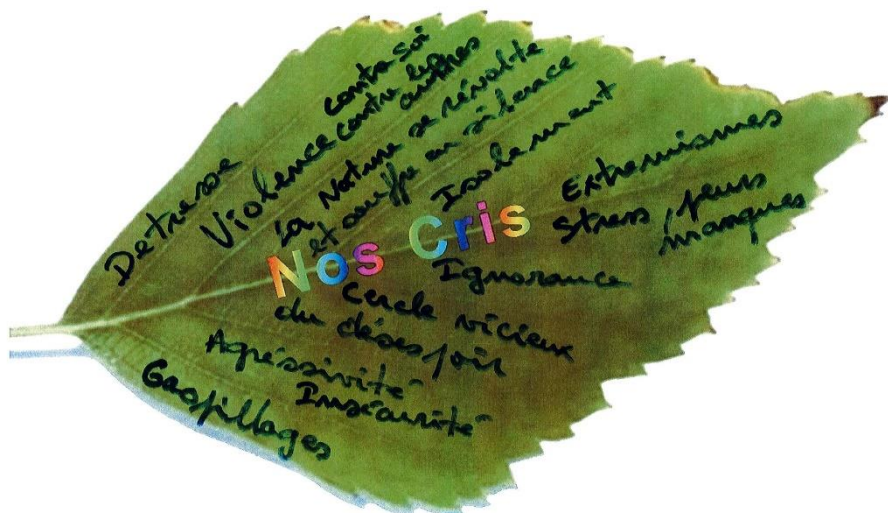 Détresse
contre soi
Violence contre les
autres
La Nature se révolte
et souffre en silence
Isolement
Extremismes
Stress, peurs
manques
Nos Cris
Ignorance
Cercle vicieux
du désespoir
Agréssivité
Insécurité
Gaspillages